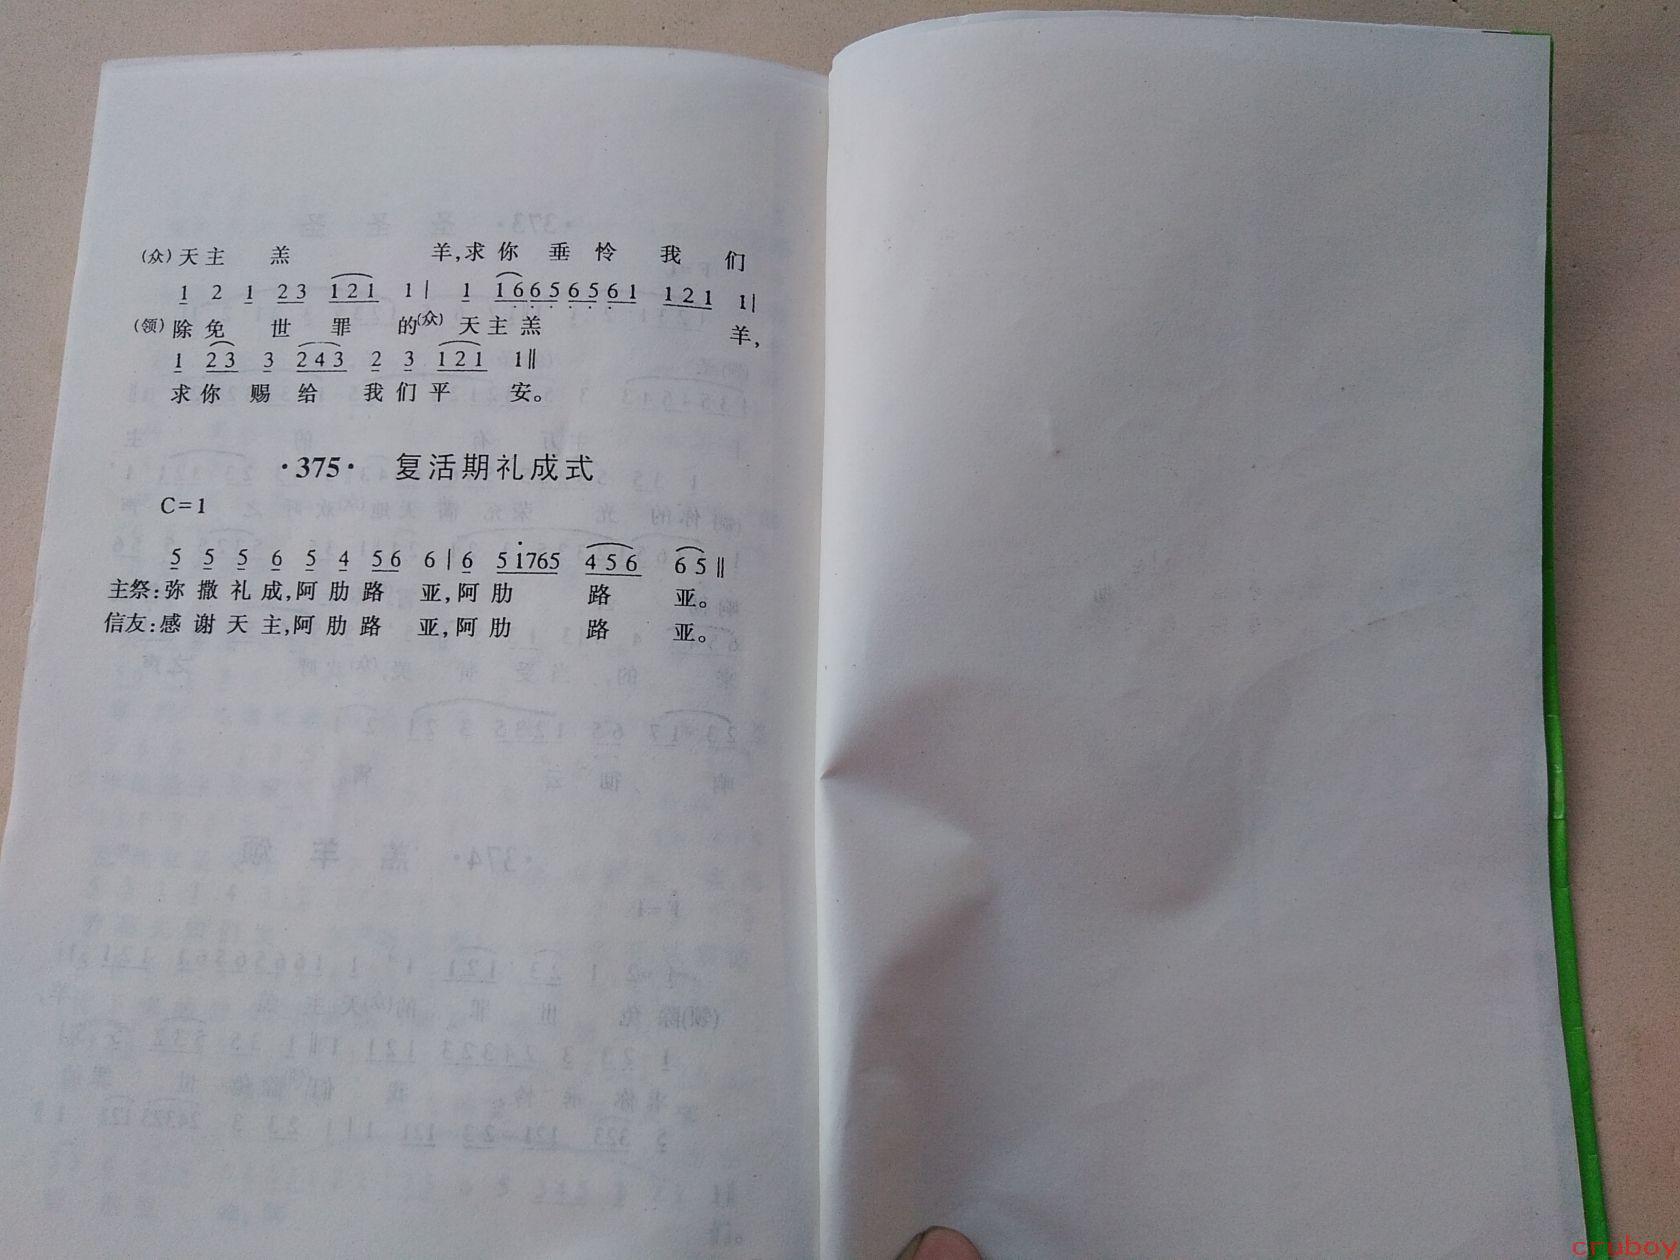 (众)天主 羔 羊,求你 垂怜 我 们
1 2 1 23 121 1| 1 16656561 121 1|
(领)除免 世 罪 的(众)天主羔 羊,
1 23 3 243 2 3 121 1‖
求你 赐 给 我们平 安。
·375· 复活期礼成式
C=1
5 5 5 6 5 4 56 6|6 5i765 456 65‖
主祭:弥撒礼成,阿肋路 亚,阿肋 路 亚。
信友:感谢天主,阿肋路 亚,阿肋 路 亚。
cruboy